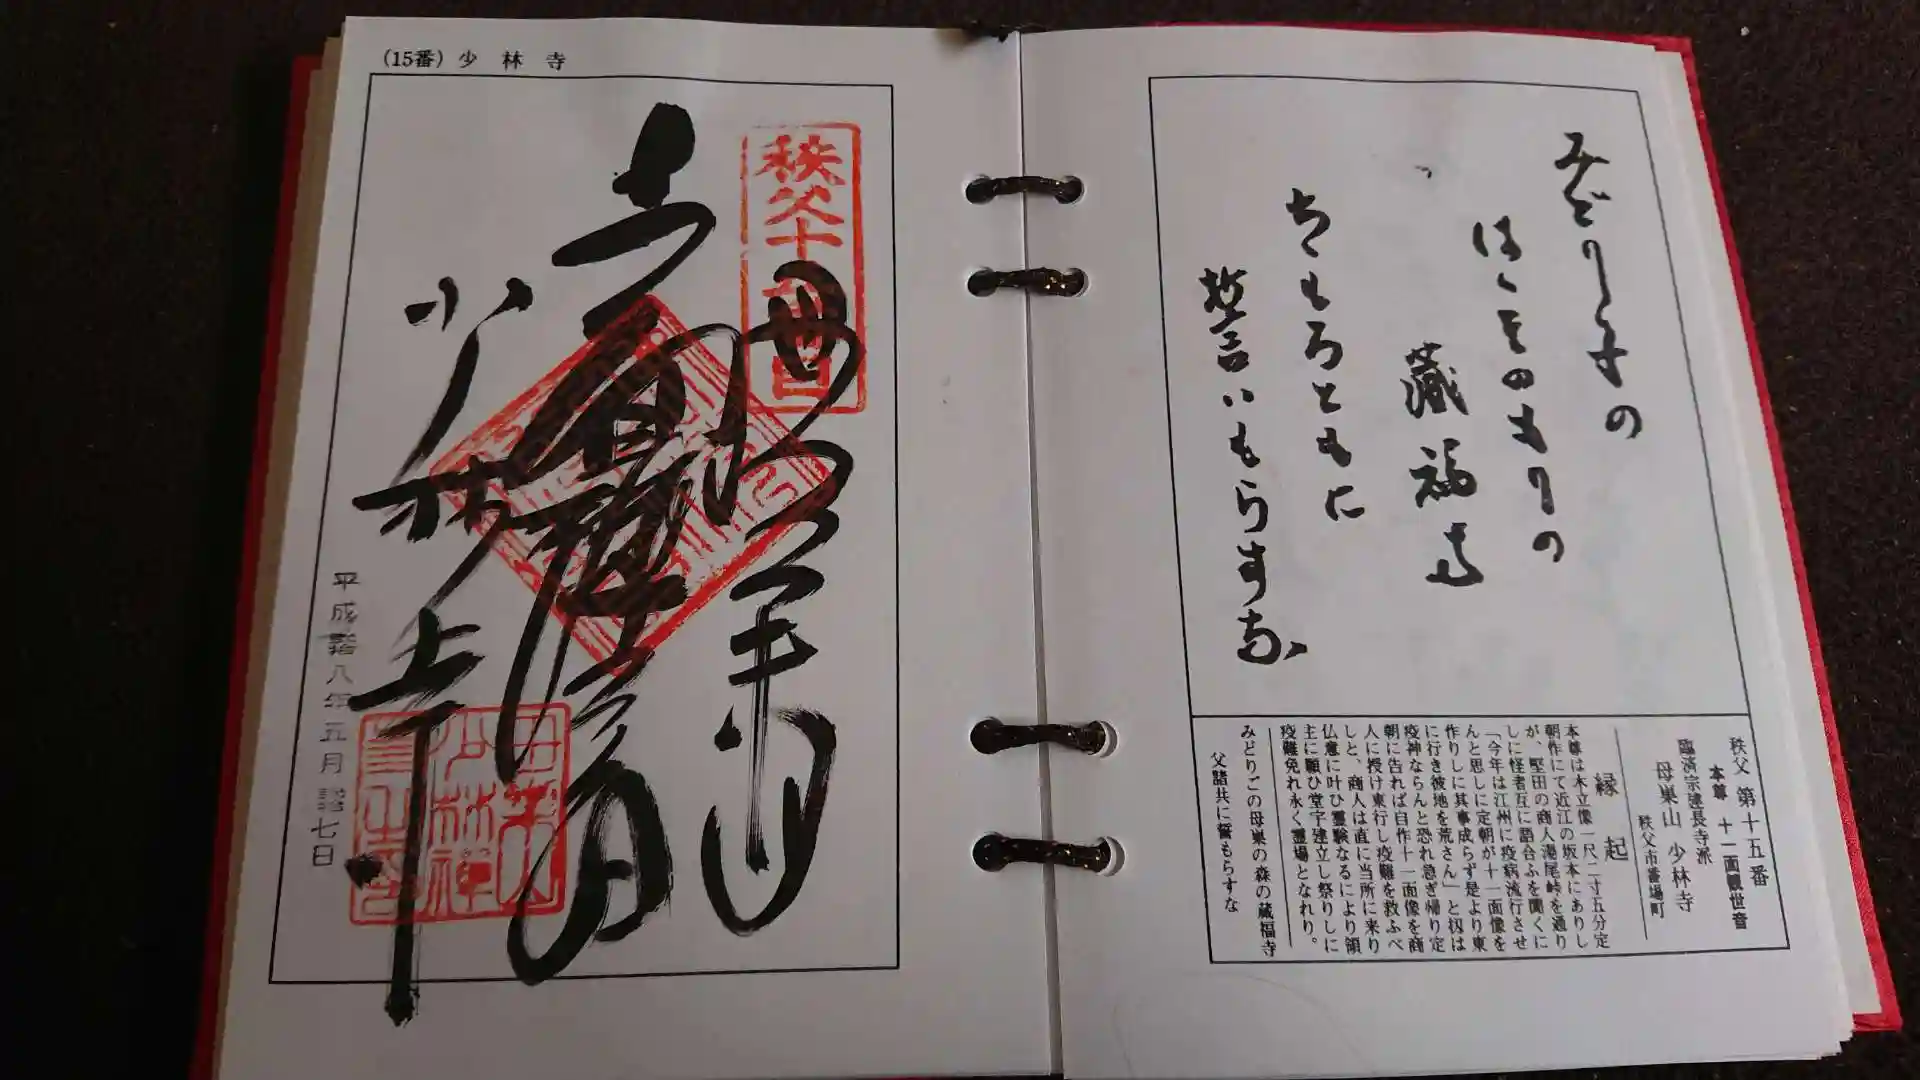 みどり子の
はゝそのもりの
蔵福寺
ちゝもろともに
誓いもらすな
秩父 第十五番
本尊 十一面観世音
臨済宗建長寺派
母巣山 少林寺
秩父市番場町
縁起
本尊は木立像一尺二寸五分定
朝作にて近江の坂本にありし
が、堅田の商人湯尾峠を通り
しに怪者互に語合ふを聞くに
「今年は江州に疫病流行させ
んと思しに定朝が十一面像を
作りしに其事成らず是より東
に行き彼地を荒さん」と扨は
疫神ならんと恐れ急ぎ帰り定
朝に告れば自作十一面像を商
人に授け東行し疫難を救ふべ
しと、商人は直に当所に来り
仏意に叶ひ霊験なるにより領
主に願ひ堂宇建立し祭りしに
疫難免れ永く霊場となれり。
みどりごの母巣の森の蔵福寺
父諸共に誓もらすな
(15番) 少林寺
秩父十
母巣山
少林寺
八年五月
七日